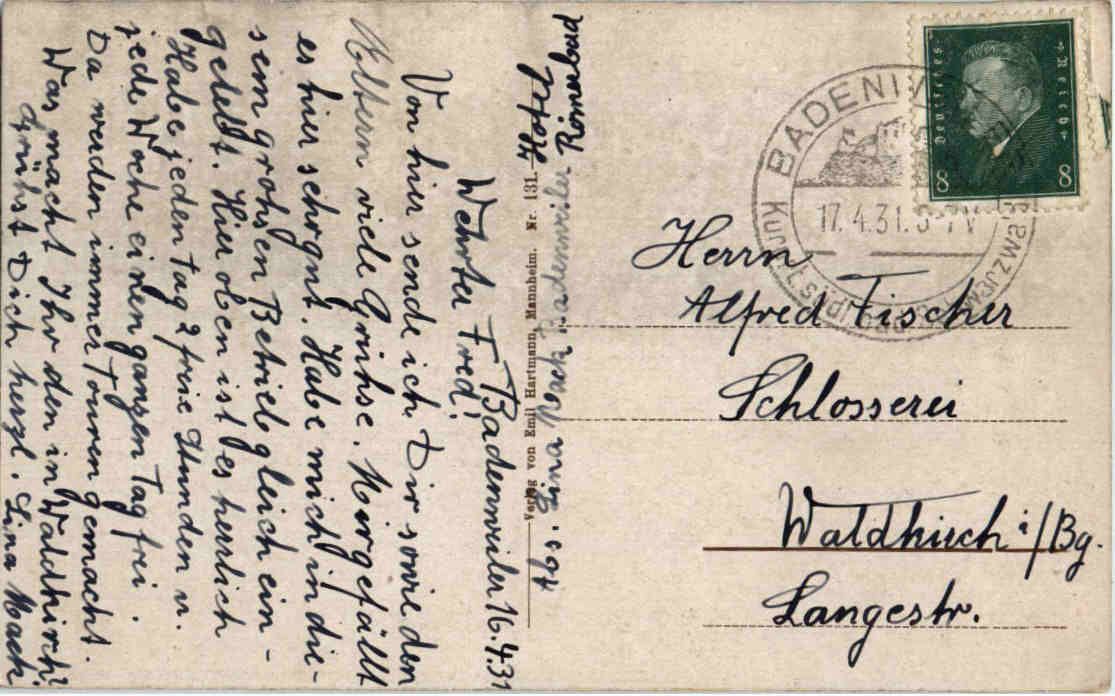 Badenweiler 16.4.31
Werter Fred!
Von hier sende ich Dir sowie den
Eltern viele Grühse. Mir gefällt
es hier sehr gut. Habe mich in die-
sem grohsen Betrieb gleich ein-
gelebt. Hier oben ist es herrlich
Habe jeden Tag 2 freie Stunden u.
jede Woche einen ganzen Tag frei.
Da werden immer Touren gemacht.
Was macht Ihr den in Waldkirch?
Grühst Dich herzl. Lina Mack
Lina Mack Badenweiler
Hotel Römerbad
Verlag von Emil Hartmann, Mannheim. Nr. 131.
Deutsches Reich
8 8
BADENW
17.4.31.
Herrn
Alfred Fischer
Schlosserei
Waldkirch i/Bg.
Langestr.